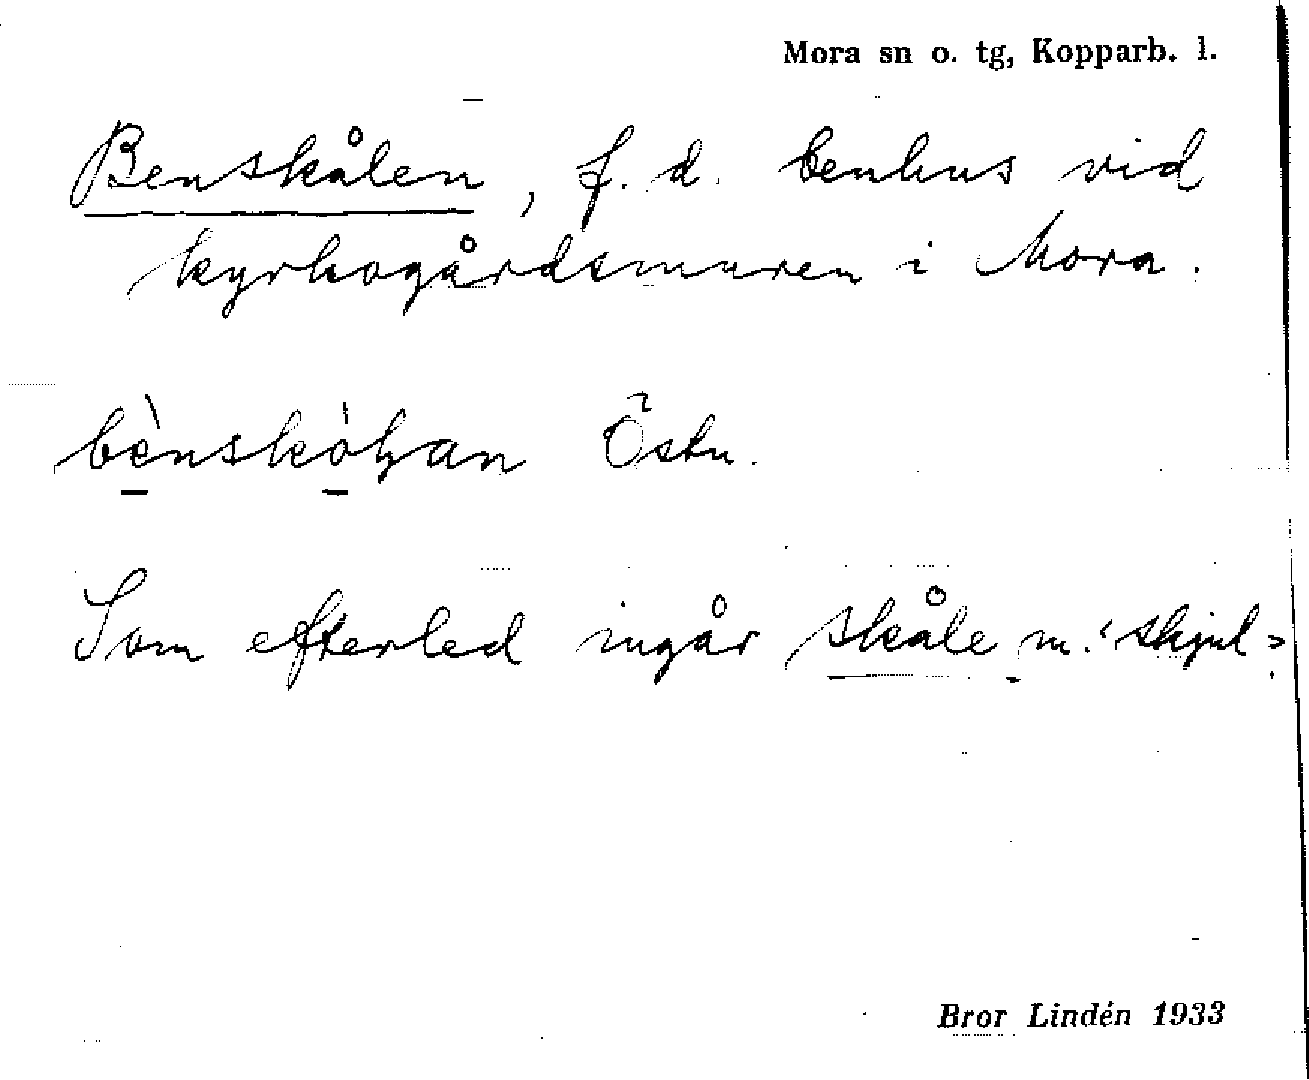 Mora sn o. tg, Kopparb. l.
Benskålen, f. d. benhus vid
kyrkogårdsmuren i Mora.
Östn.
Som efterled ingår skåle m. 'skjul'.
Bror Lindén 1933